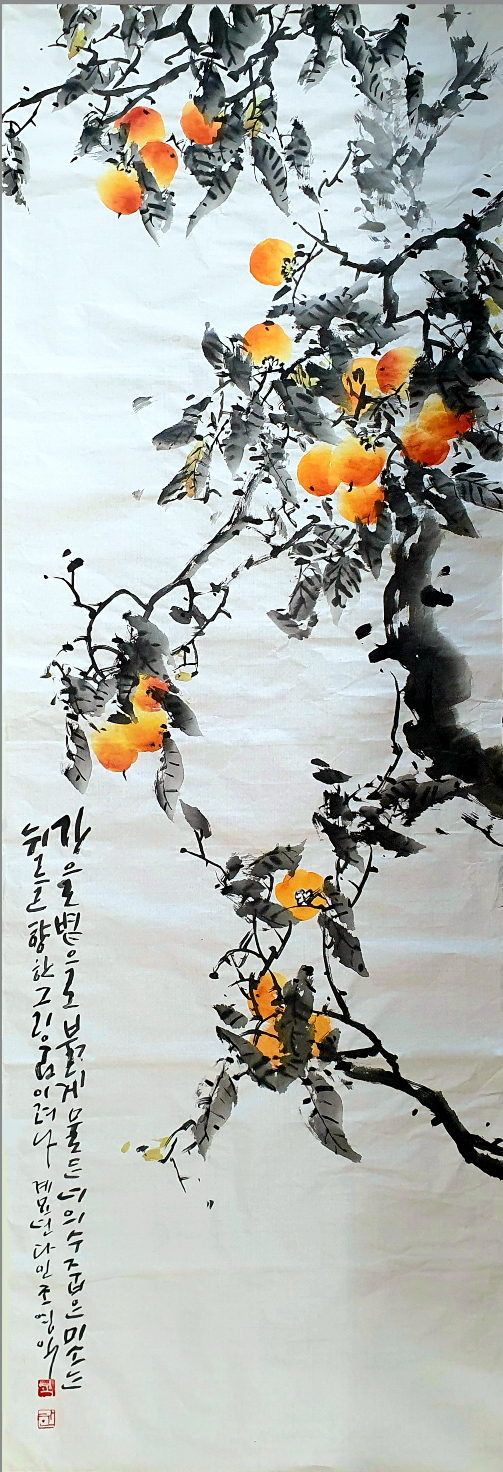 가을볕으로 붉게 물든 너의 수줍은 미소는
누구를 향한 그리움이려나 계묘년 다인 조영